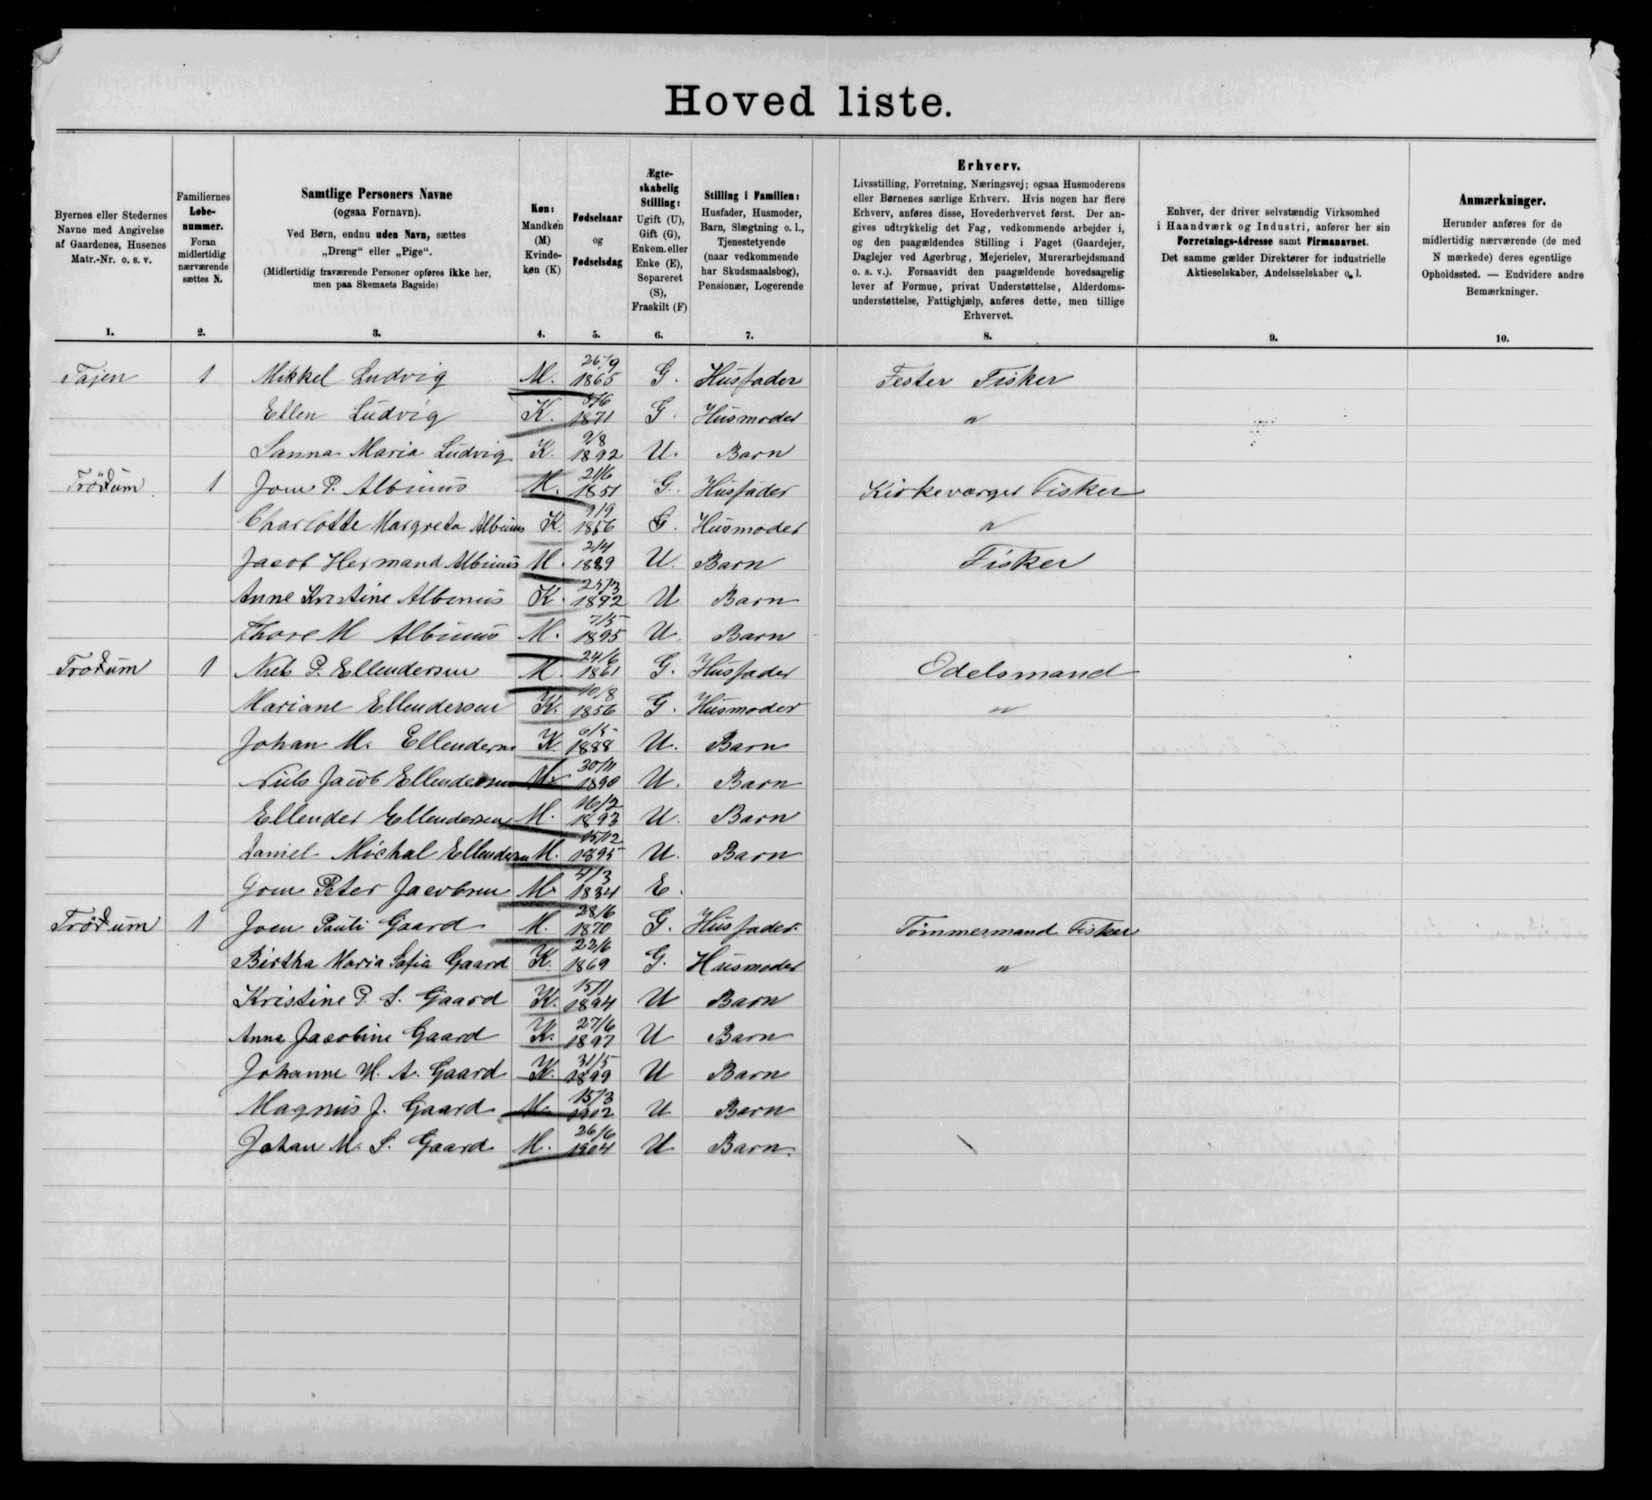 Hoved liste.
Byernes eller Stedernes Navne med Angivelse af Gaardenes, Husenes Matr.-Nr. o. s. v.
Familiernes Løbenummer. Foran midlertidig nærværende sættes N.
Samtlige Personers Navne (ogsaa Fornavn). Ved Børn, endnu uden Navn, sættes „Dreng“ eller „Pige“. (Midlertidig fraværende Personer opføres ikke her, men paa Skemaets Bagside)
Køn: Mandkøn (M) Kvindekøn (K)
Fødselsaar og Fødselsdag
Ægteskabelig Stilling: Ugift (U), Gift (G), Enkem. eller Enke (E), Separeret (S), Fraskilt (F)
Stilling i Familien: Husfader, Husmoder, Barn, Slægtning o. l., Tjenestetyende (naar vedkommende har Skudsmaalsbog), Pensionær, Logerende
Erhverv. Livsstilling, Forretning, Næringsvej; ogsaa Husmoderens eller Børnenes særlige Erhverv. Hvis nogen har flere Erhverv, anføres disse, Hovederhvervet først. Der angives udtrykkelig det Fag, vedkommende arbejder i, og den paagældendes Stilling i Faget (Gaardejer, Daglejer ved Agerbrug, Mejerielev, Murerarbejdsmand o. s. v.). Forsaavidt den paagældende hovedsagelig lever af Formue, privat Understøttelse, Alderdomsunderstøttelse, Fattighjælp, anføres dette, men tillige Erhvervet.
Enhver, der driver selvstændig Virksomhed i Haandværk og Industri, anfører her sin Forretnings-Adresse samt Firmanavnet. Det samme gælder Direktører for industrielle Aktieselskaber, Andelsselskaber o. l.
Anmærkninger. Herunder anføres for de midlertidig nærværende (de med N mærkede) deres egentlige Opholdssted. — Endvidere andre Bemærkninger.
1. 2. 3. 4. 5. 6. 7. 8. 9. 10.
1 Mikkel Ludvig M. 26/9 1865 G. Husfader Fester Fisker
Ellen Ludvig K. 1871 G. Husmoder "
Sanna Maria Ludvig K. 9/8 1892 U. Barn
1 Joen P. Albinus M. 21/6 1851 G. Husfader Kirkeværger Fisker
Charlotte Margreta Albinus K. 1856 G. Husmoder "
Jacob Hermand Albinus M. 2/4 1889 U. Barn Fisker
Anne Kristine Albinus K. 25/3 1892 U Barn
Thore M Albinus M. 7/5 1895 U. Barn
1 Niels P. Ellendersen M. 24/6 1861 G. Husfader Odelsmand
Mariane Ellendersen K. 10/8 1856 G. Husmoder "
Johan M. Ellendersen K. 1888 U. Barn
Niels Jacob Ellendersen M. 30/11 1890 U. Barn
Ellender Ellendersen M. 16/2 1893 U. Barn
Daniel Michal Ellendersen M. 15/12 1895 U. Barn
Joen Peter Jacobsen M. 1834 E.
1 Joen Pauli Gaard M. 28/6 1870 G. Husfader Tömmermand Fisker
Birtha Maria Sofia Gaard K. 22/6 1869 G. Husmoder "
Kristine P. S. Gaard K. 15/1 1894 U Barn
Anna Jacobine Gaard K. 27/6 1897 U Barn
Johanne H. A. Gaard K. 31/5 1899 U Barn
Magnus J. Gaard M. 15/3 1902 U Barn
Johan M. S. Gaard M. 26/6 1904 U Barn.